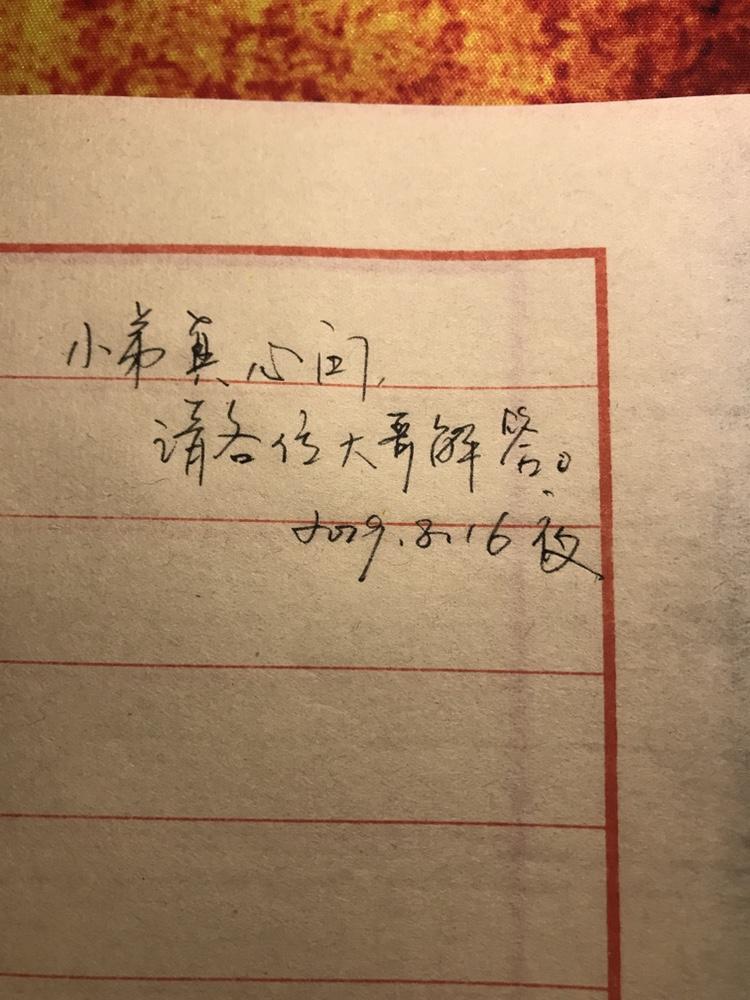 小弟真心问,
请各位大哥解答。
2019.8.16夜